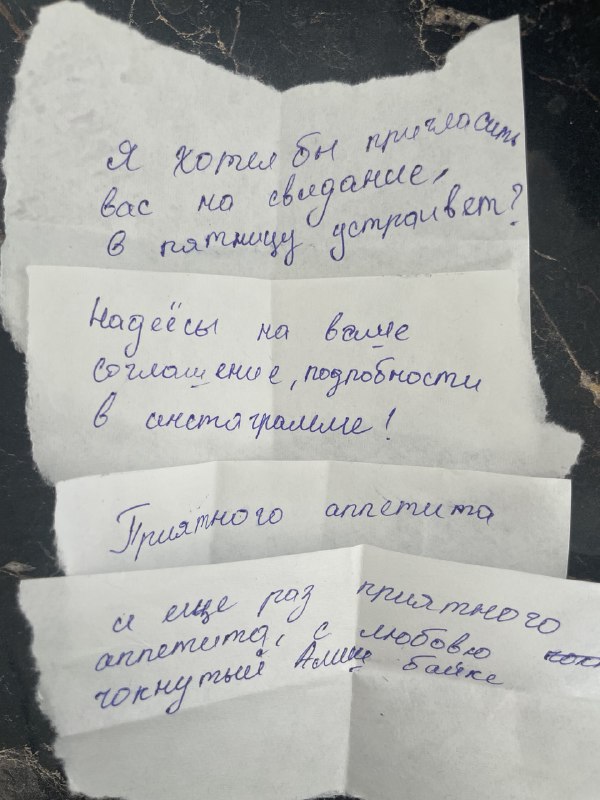 Я хотел бы пригласить
вас на свидание,
в пятницу устраивет?
Надеёсы на ваше
соглашение, подробности
в инстаграмме!
Приятного аппетита
и еще раз приятного
аппетита, с любовю
чокнутый Алиш байке